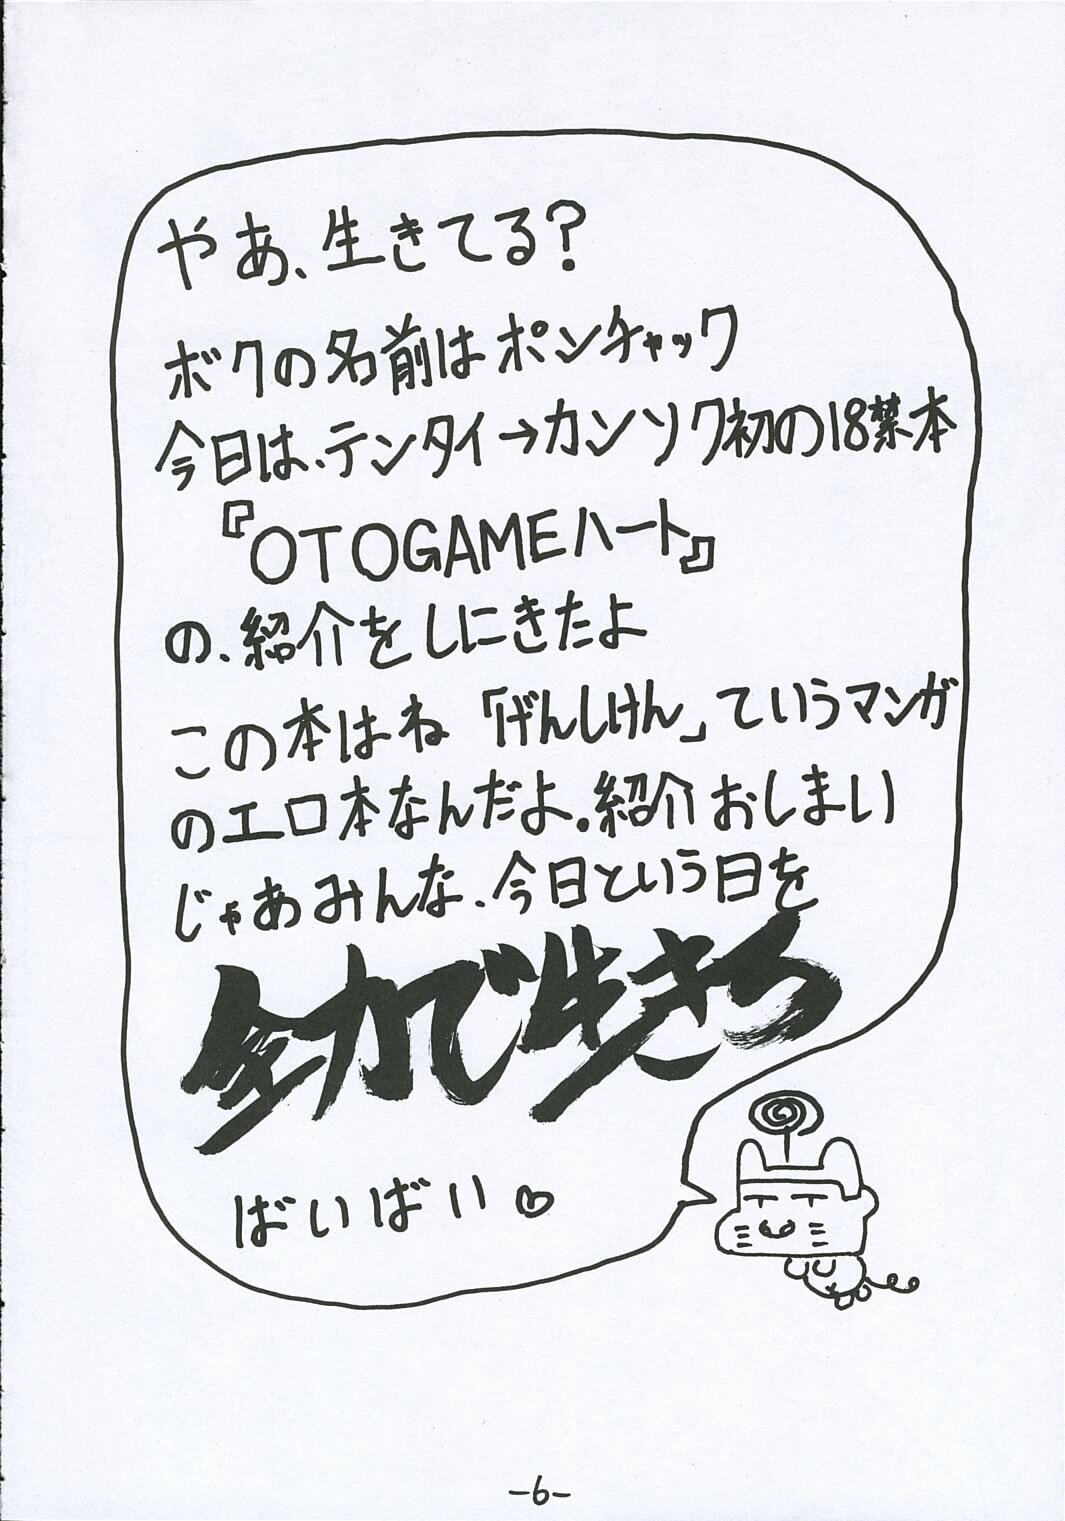 やあ、生きてる?
ボクの名前はポンチャック
今日は、テンタイ→カンソク初の18禁本
『OTOGAMEハート』
の、紹介をしにきたよ
この本はね「げんしけん」ていうマンガ
のエロ本なんだよ。紹介おしまい
じゃあみんな、今日という日を
全力で生きろ
ばいばい♡
-6-